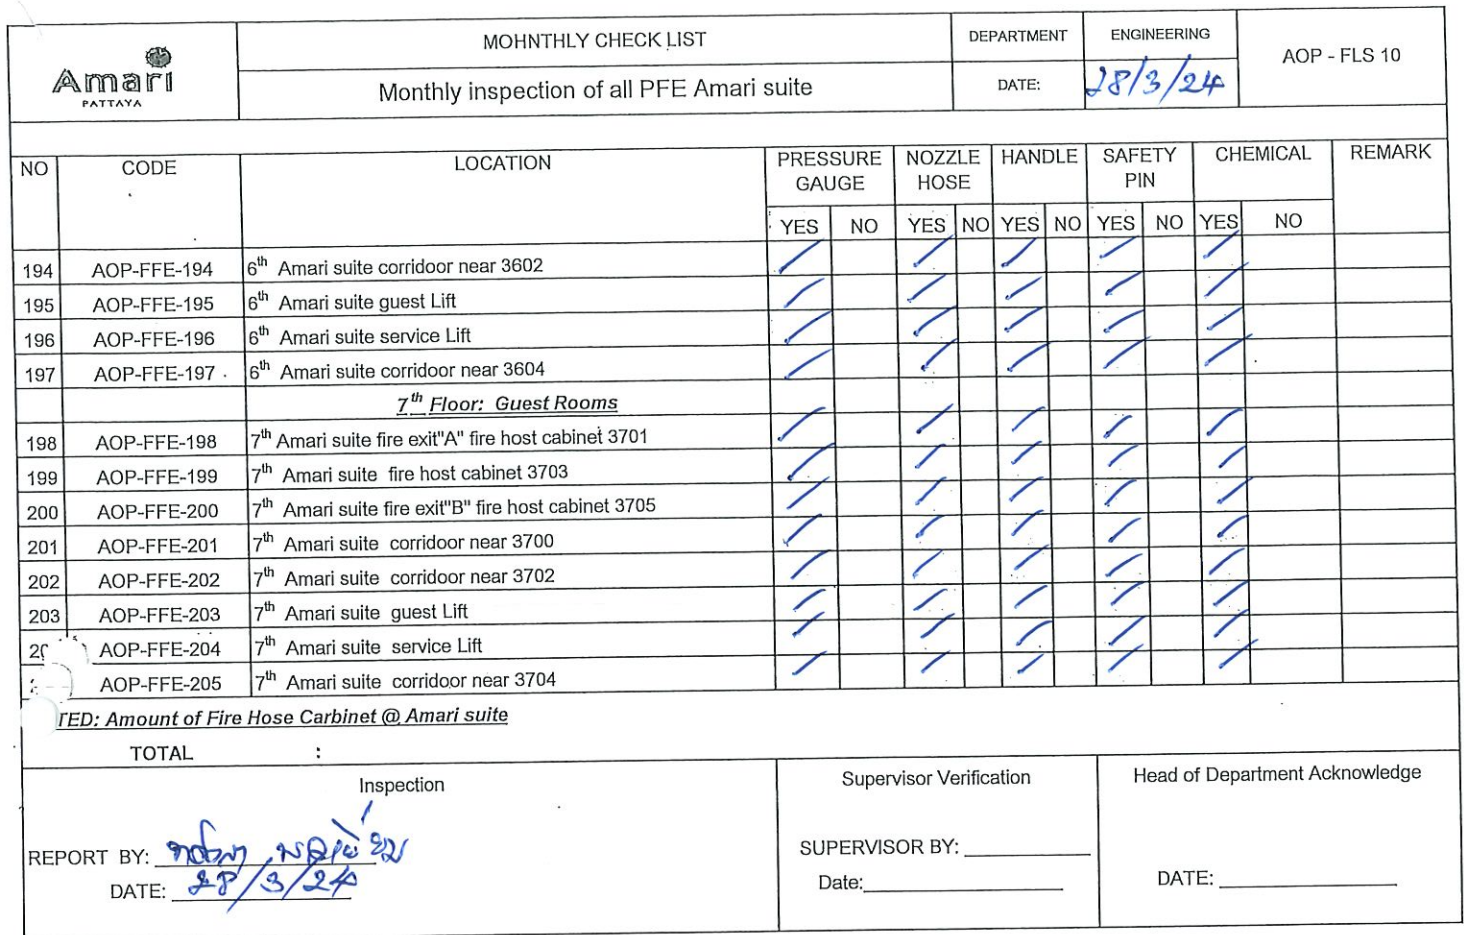 Amari
PATTAYA
MOHNTHLY CHECK LIST
Monthly inspection of all PFE Amari suite
DEPARTMENT ENGINEERING
DATE: 28/3/24
AOP - FLS 10
NO CODE LOCATION PRESSURE GAUGE NOZZLE HOSE HANDLE SAFETY PIN CHEMICAL REMARK
YES NO YES NO YES NO YES NO YES NO
194 AOP-FFE-194 6th Amari suite corridoor near 3602
195 AOP-FFE-195 6th Amari suite guest Lift
196 AOP-FFE-196 6th Amari suite service Lift
197 AOP-FFE-197 6th Amari suite corridoor near 3604
7th Floor: Guest Rooms
198 AOP-FFE-198 7th Amari suite fire exit"A" fire host cabinet 3701
199 AOP-FFE-199 7th Amari suite fire host cabinet 3703
200 AOP-FFE-200 7th Amari suite fire exit"B" fire host cabinet 3705
201 AOP-FFE-201 7th Amari suite corridoor near 3700
202 AOP-FFE-202 7th Amari suite corridoor near 3702
203 AOP-FFE-203 7th Amari suite guest Lift
AOP-FFE-204 7th Amari suite service Lift
AOP-FFE-205 7th Amari suite corridoor near 3704
TED: Amount of Fire Hose Carbinet @ Amari suite
TOTAL :
Inspection
REPORT BY:
DATE: 28/3/24
Supervisor Verification
SUPERVISOR BY:
Date:
Head of Department Acknowledge
DATE: